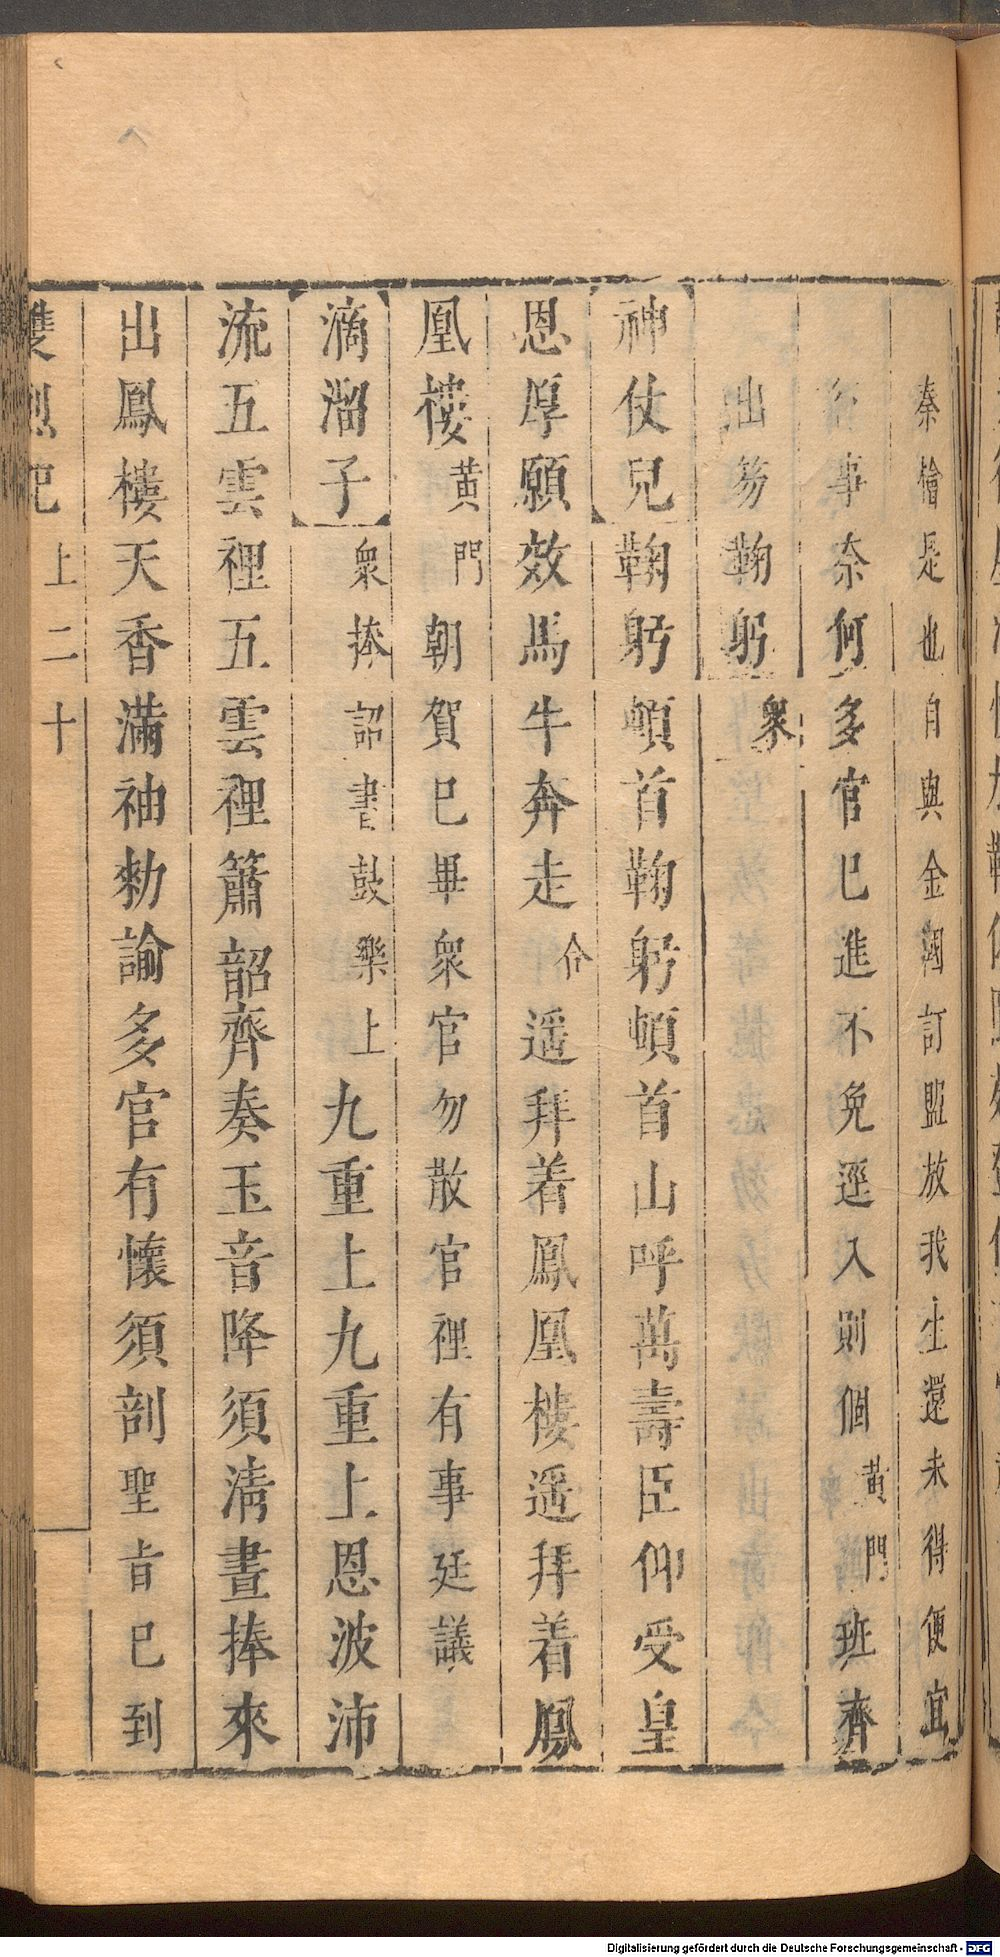 秦檜是也自與金國訂盟放我生還未得便宜
行事奈何多官已進不免逕入則個黃門班齊
出笏鞠躬衆
神仗兒鞠躬頓首鞠躬頓首山呼萬壽臣仰受皇
恩厚願效馬牛奔走合遥拜着鳳凰樓遥拜着鳳
凰樓黃門朝賀已畢衆官勿散官裡有事廷議
滴溜子衆捧詔書鼓樂上九重上九重上恩波沛
流五雲裡五雲裡簫韶齊奏玉音降須淸晝捧來
出鳳樓天香滿袖勑諭多官有懷須剖聖旨已到
雙烈記 上 二十
Digitalisierung gefördert durch die Deutsche Forschungsgemeinschaft - DFG